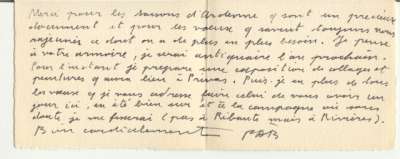 Merci pour les saisons d'Ardenne q sont un précieux
document et pour les voeux q savent toujours nous
rajeunir ce dont on a de plus en plus besoin. Je pense
à votre armoire, je serai antiquaire l'an prochain.
Pour l'instant je prépare une exposition de collages et
peintures q aura lieu à Privas. Puis je en plus de tous
les voeux q je vous adresse faire celui de vous avoir un
jour ici, en été bien sur et à la campagne où sans
doute, je me fixerai (pas à Ribaute mais à Rivières).
Bien cordialement PAB